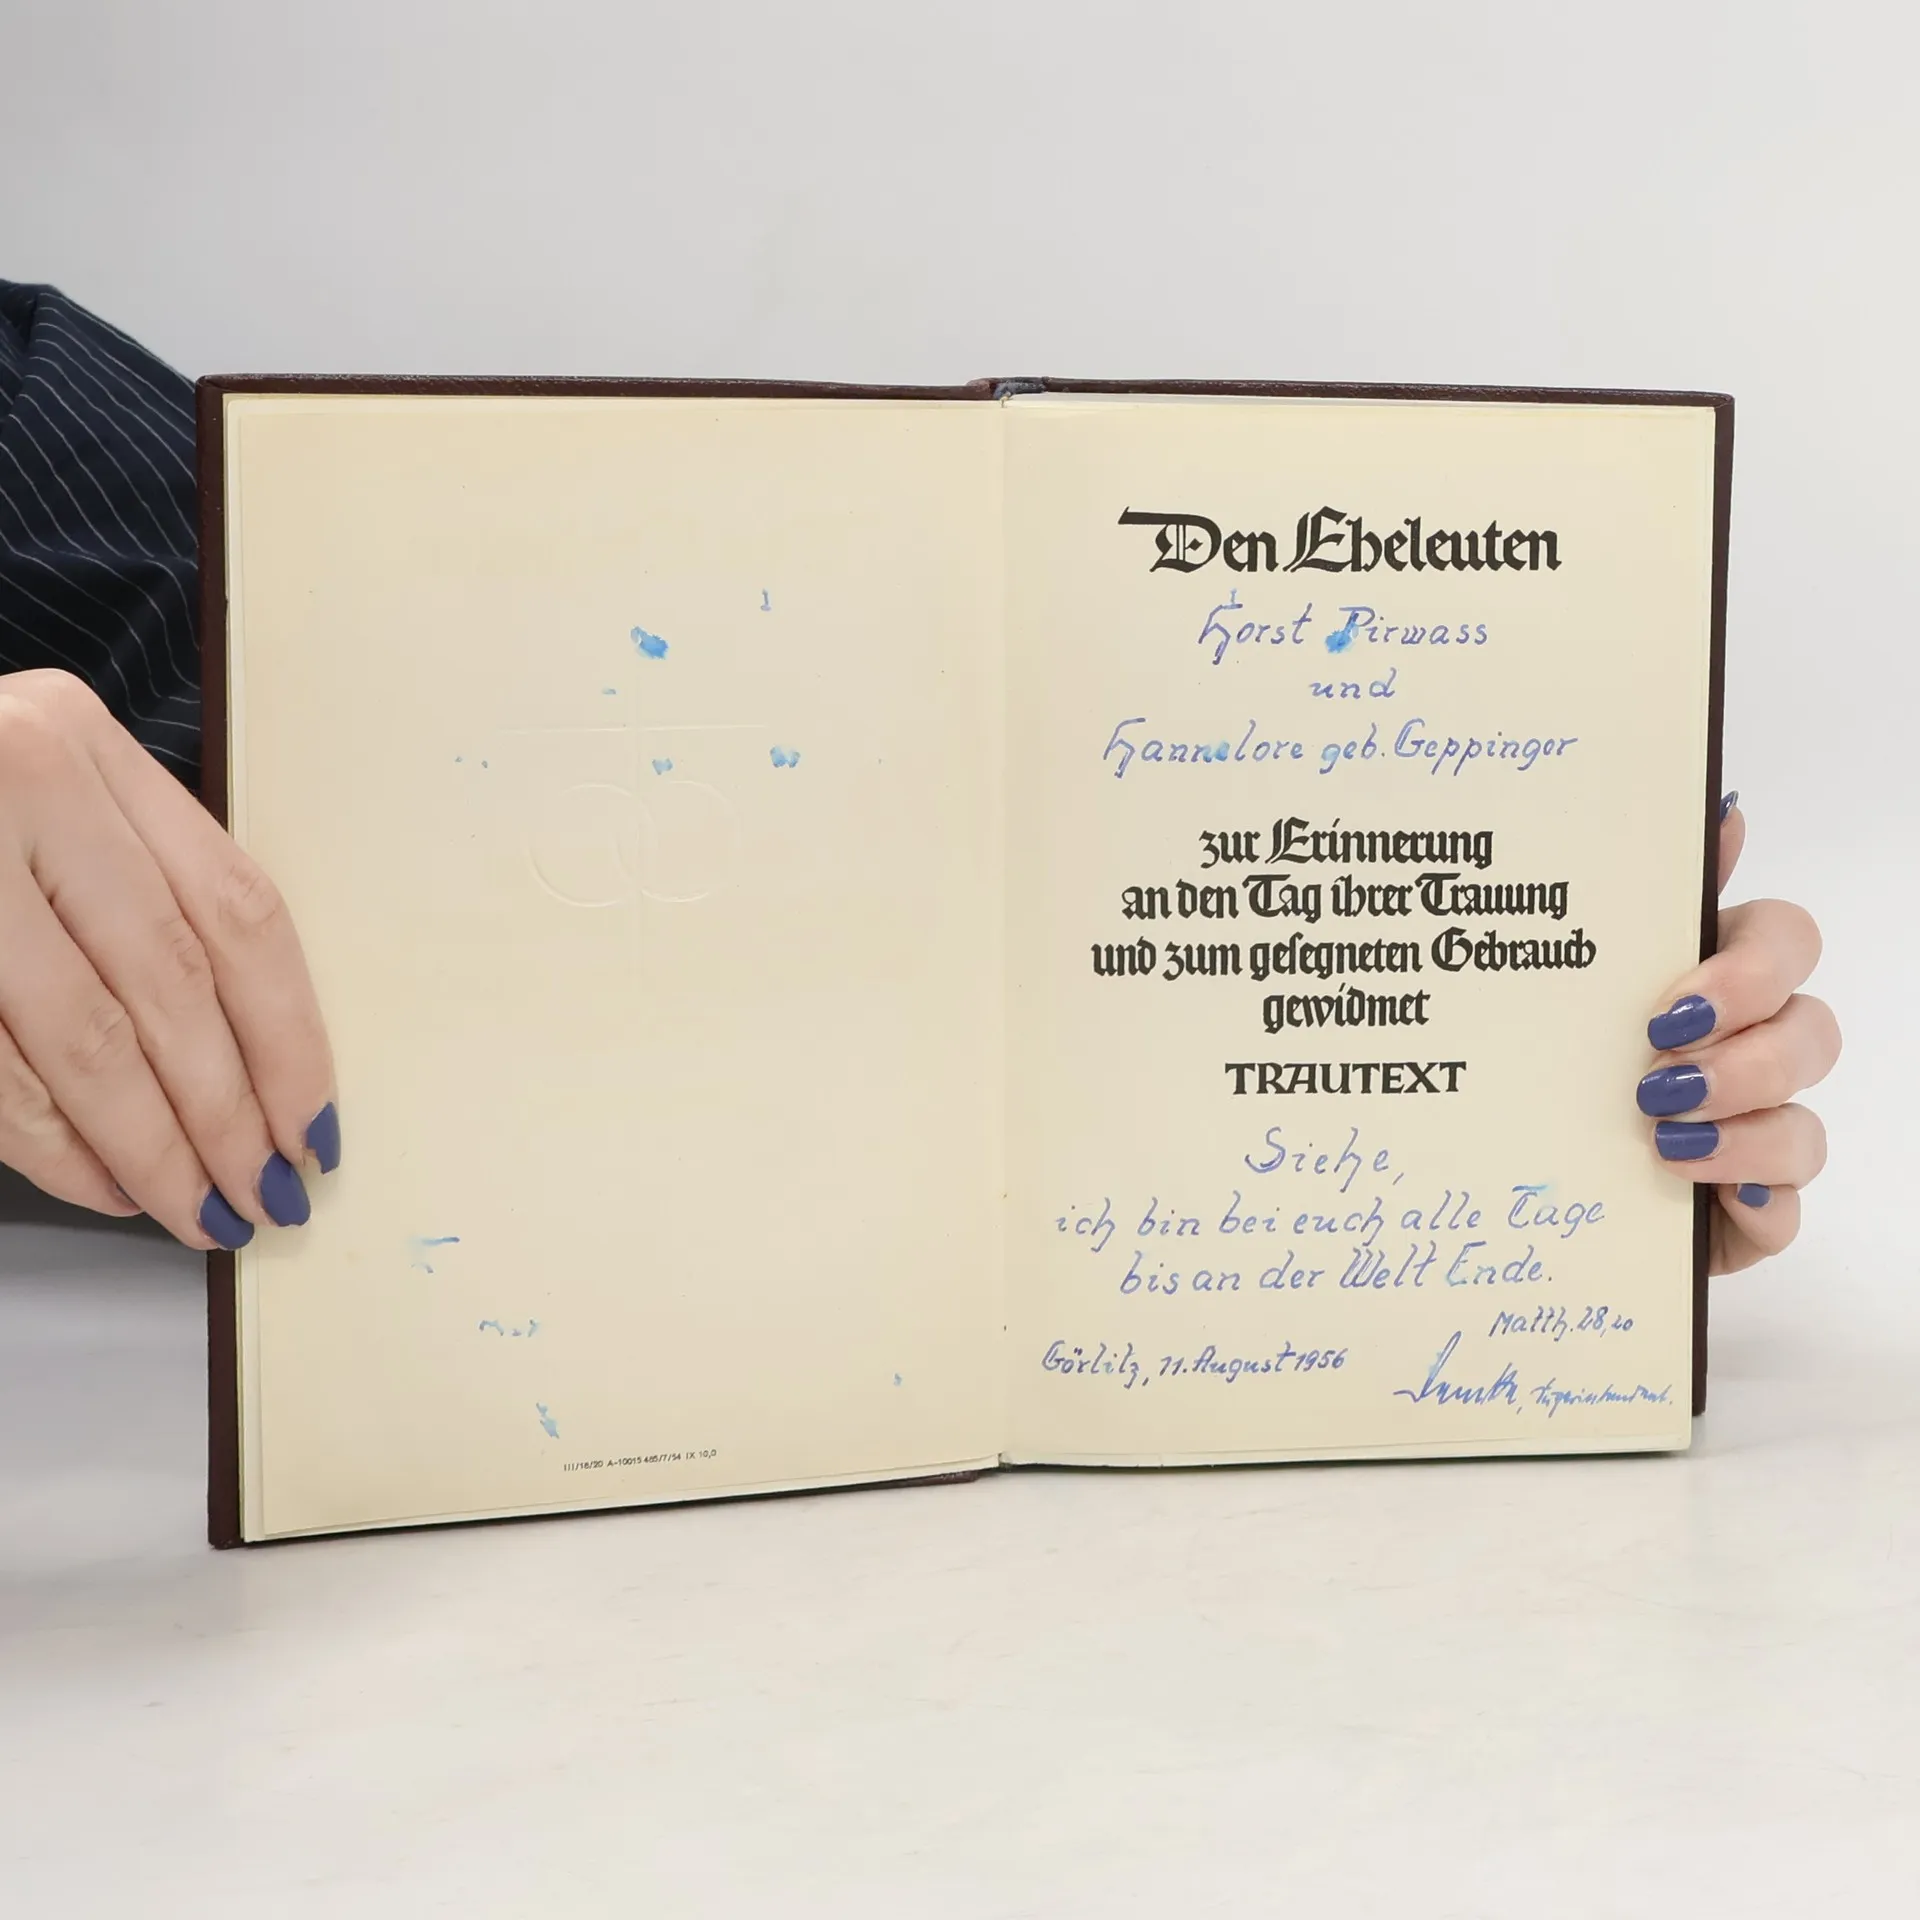 III/18/20 A-10015 485/7/54 IX 10,0
Den Eheleuten
Horst Pirwass
und
Hannelore geb. Geppinger
zur Erinnerung
an den Tag ihrer Trauung
und zum geſegneten Gebrauch
gewidmet
TRAUTEXT
Siehe,
ich bin bei euch alle Tage
bis an der Welt Ende.
Matth. 28,20
Görlitz, 11. August 1956
Superintendent.